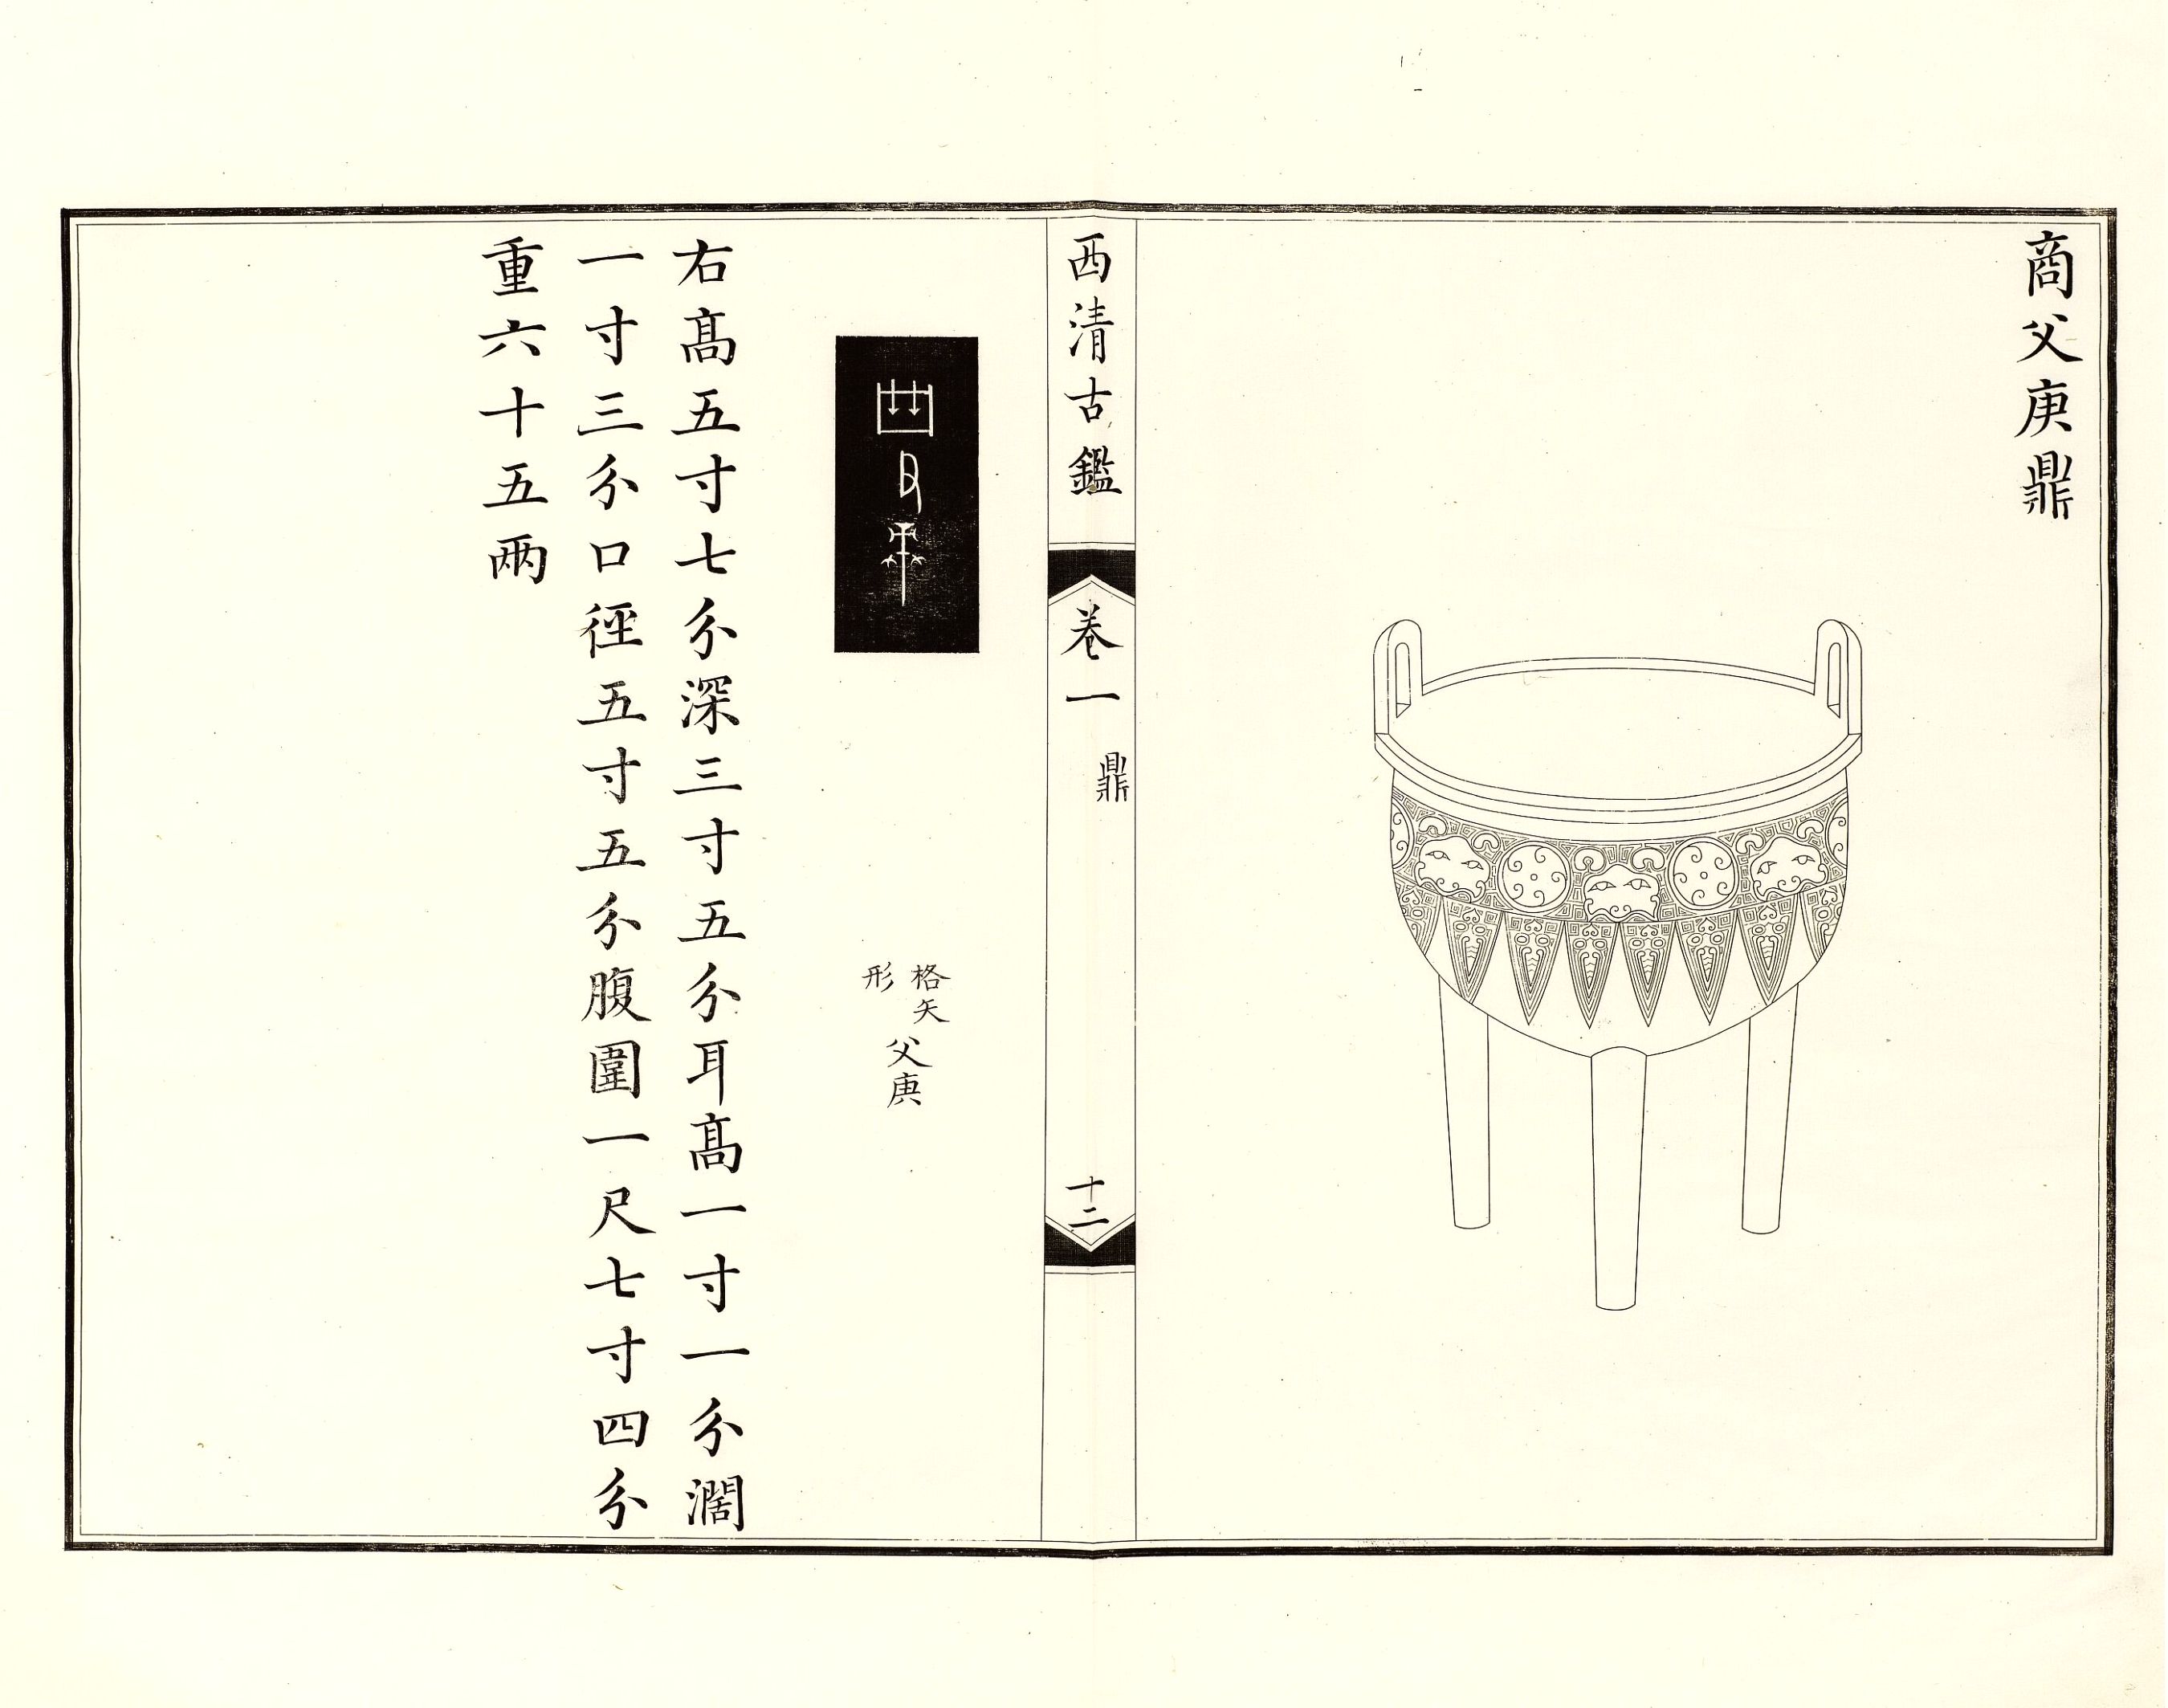 商父庚鼎
西清古鑑
卷一
鼎
十二
格矢
形
父庚
右高五寸七分深三寸五分耳高一寸一分濶
一寸三分口徑五寸五分腹圍一尺七寸四分
重六十五兩